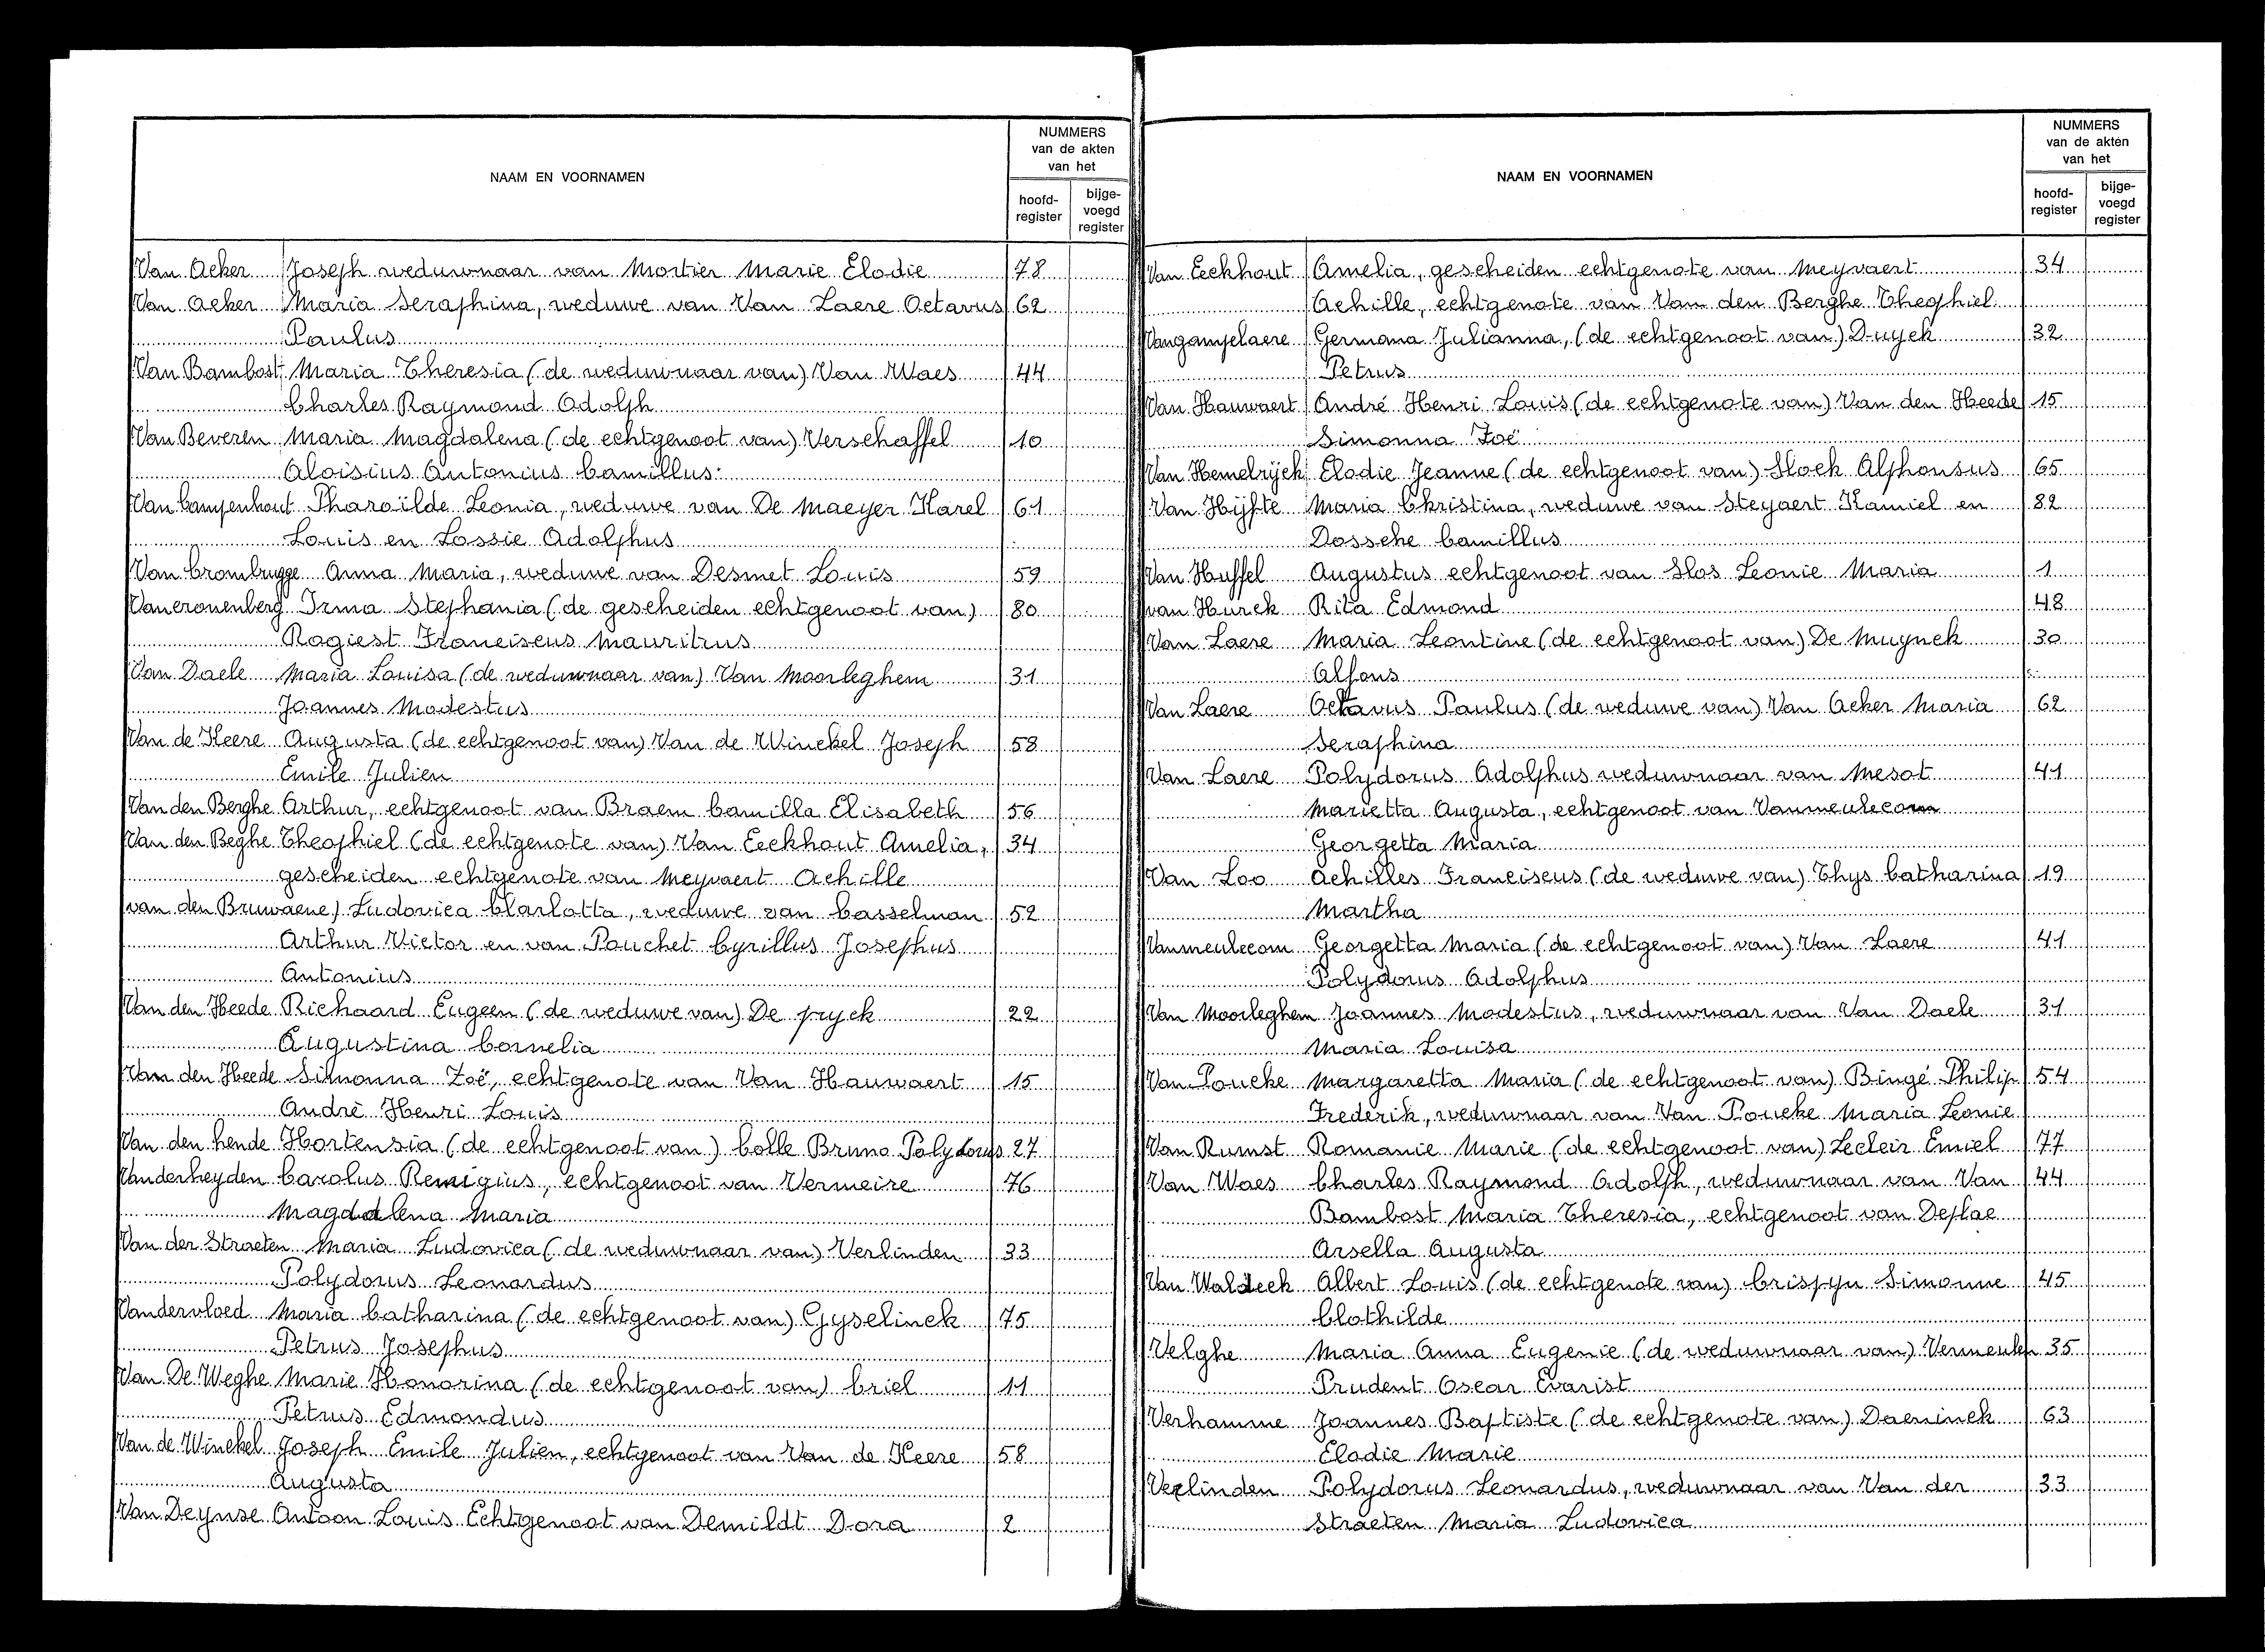 NAAM EN VOORNAMEN
NUMMERS
van de akten
van het
hoofd-
register
bijge-
voegd
register
Van Acker Joseph weduwnaar van Mortier Marie Elodie 78
Van Acker Maria Seraphina, weduwe van Van Laere Octavus 62
Paulus
Van Bambost Maria Theresia (de weduwnaar van) Van Waes 44
Charles Raymond Adolph
Van Beveren Maria Magdalena (de echtgenoot van) Verschaffel 10
Aloisius Antonius Camillus
Van Campenhout Pharoïlde Leonia, weduwe van De Maeyer Karel 61
Louis en Lossie Adolphus
Van Crombrugge Anna Maria, weduwe van Desmet Louis 59
Vancronenberg Irma Stephania (de gescheiden echtgenoot van) 80
Rogiest Franciscus Mauritius
Van Daele Maria Louisa (de weduwnaar van) Van Moorleghem 31
Joannes Modestus
Van de Keere Augusta (de echtgenoot van) Van de Winckel Joseph 58
Emile Julien
Van den Berghe Arthur, echtgenoot van Braem Camilla Elisabeth 56
Van den Beghe Theophiel (de echtgenote van) Van Eeckhout Amelia, 34
gescheiden echtgenote van Meyvaert Achille
van den Bruwaene) Ludovica Clarlotta, weduwe van Casselman 52
Arthur Victor en van Pouchet Cyrillus Josephus
Antonius
Van den Heede Richaard Eugeen (de weduwe van) De pryck 22
Augustina Cornelia
Van den Heede Simonna Zoë, echtgenote van Van Hauwaert 15
André Henri Louis
Van den hende Hortensia (de echtgenoot van) Colle Bruno Polydorus 27
Vanderheyden Carolus Remigius, echtgenoot van Vermeire 76
Magdalena Maria
Van der Straeten Maria Ludovica (de weduwnaar van) Verlinden 33
Polydorus Leonardus
Vandervloed Maria Catharina (de echtgenoot van) Gyselinck 75
Petrus Josephus
Van De Weghe Marie Honorina (de echtgenoot van) Criel 11
Petrus Edmondus
Van de Winckel Joseph Emile Julien, echtgenoot van Van de Keere 58
Augusta
Van Deynse Antoon Louis Echtgenoot van Demildt Dora 2
NAAM EN VOORNAMEN
NUMMERS
van de akten
van het
hoofd-
register
bijge-
voegd
register
Van Eeckhout Amelia, gescheiden echtgenote van Meyvaert 34
Achille, echtgenote van Van den Berghe Theophiel
Vangampelaere Germana Julianna, (de echtgenoot van) Duyck 32
Petrus
Van Hauwaert André Henri Louis (de echtgenote van) Van den Heede 15
Simonna Zoë
Van Hemelrijck Elodie Jeanne (de echtgenoot van) Slock Alphonsus 65
Van Hijfte Maria Christina, weduwe van Steyaert Kamiel en 82
Dossche Camillus
Van Huffel Augustus echtgenoot van Slos Leonie Maria 1
van Hurck Rita Edmond 48
Van Laere Maria Leontine (de echtgenoot van) De Muynck 30
Alfons
Van Laere Octavus Paulus (de weduwe van) Van Acker Maria 62
Seraphina
Van Laere Polydorus Adolphus weduwnaar van Mesot 41
Marietta Augusta, echtgenoot van Vanmeulecom
Georgetta Maria
Van Loo Achilles Franciscus (de weduwe van) Thys Catharina 19
Martha
Vanmeulecom Georgetta Maria (de echtgenoot van) Van Laere 41
Polydorus Adolphus
Van Moorleghem Joannes Modestus, weduwnaar van Van Daele 31
Maria Louisa
Van Poucke Margaretta Maria (de echtgenoot van) Bingé Philip 54
Frederik, weduwnaar van Van Poucke Maria Leonie
Van Rumst Romanie Marie (de echtgenoot van) Lecleir Emiel 77
Van Waes Charles Raymond Adolph, weduwnaar van Van 44
Bambost Maria Theresia, echtgenoot van Deplae
Arsella Augusta
Van Waldeck Albert Louis (de echtgenote van) Crispyn Simonne 45
Clothilde
Velghe Maria Anna Eugenie (de weduwnaar van) Vermeulen 35
Prudent Oscar Evarist
Verhamme Joannes Baptiste (de echtgenote van) Daeninck 63
Elodie Marie
Verlinden Polydorus Leonardus, weduwnaar van Van der 33
Straeten Maria Ludovica